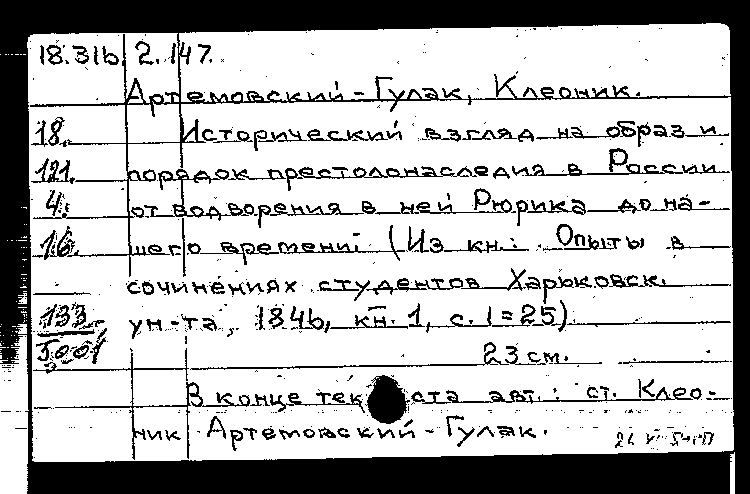 18.31b. 2.147.
Артемовский-Гулак, Клеоник.
18. Исторический взгляд на образ и
121. порядок престолонаследия в России
4. от водворения в ней Рюрика до на-
16. шего времени (Из кн.: Опыты в
сочинениях студентов Харьковск.
133 ун-та, 1846, кн. 1, с. 1=25)
5001
23 см.
В конце текста авт.: ст. Клео-
ник Артемовский-Гулак.